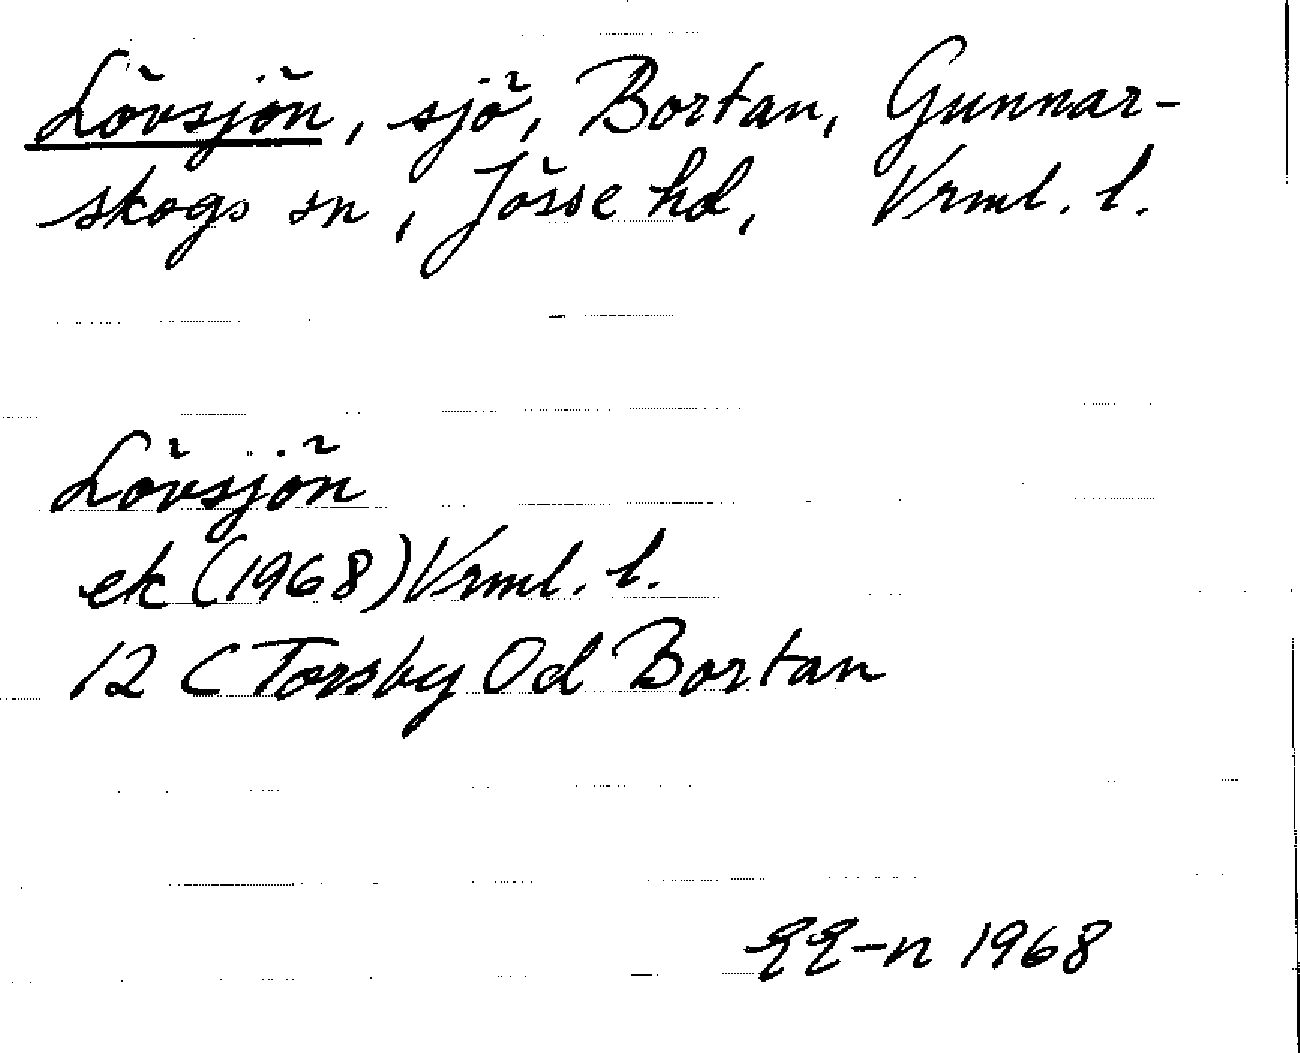 Lövsjön, sjö, Bortan, Gunnar-
skogs sn, Jösse hd, Vrml. l.
Lövsjön
ek (1968) Vrml. l.
12 C Torsby 0d Bortan
1968